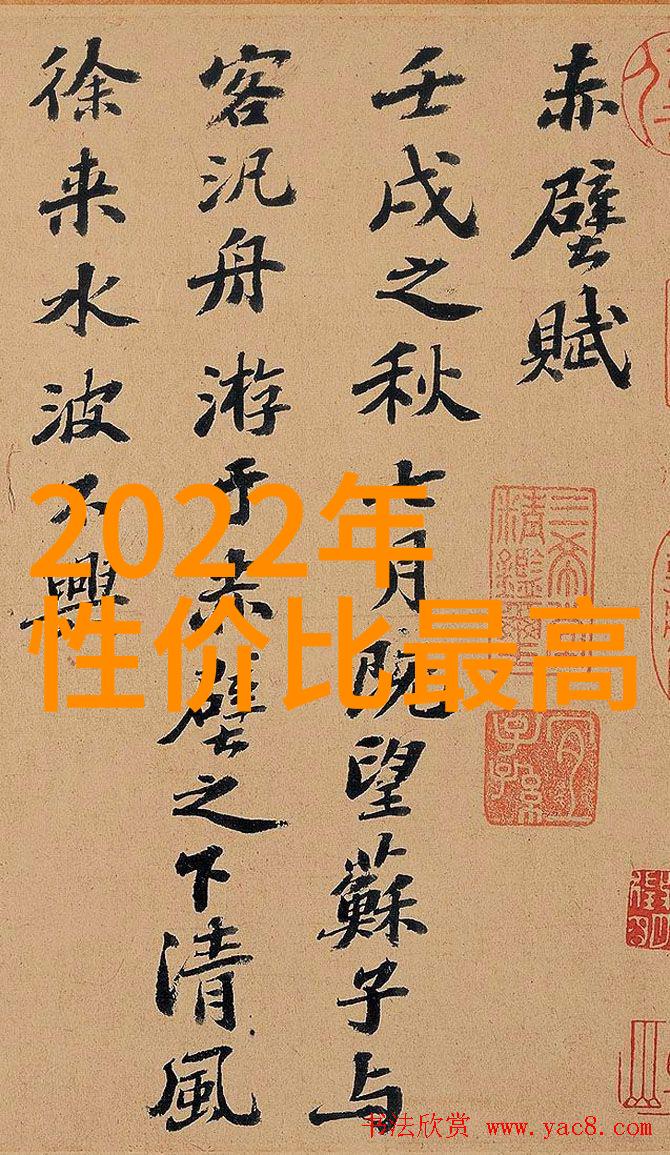 赤壁賦
壬戌之秋七月既望蘇子与
客汎舟游于赤壁之下清風
徐来水波不興
2022年
性价比最高
三希堂
精鑑璽
宜子孫
书法欣赏 www.yac8.com